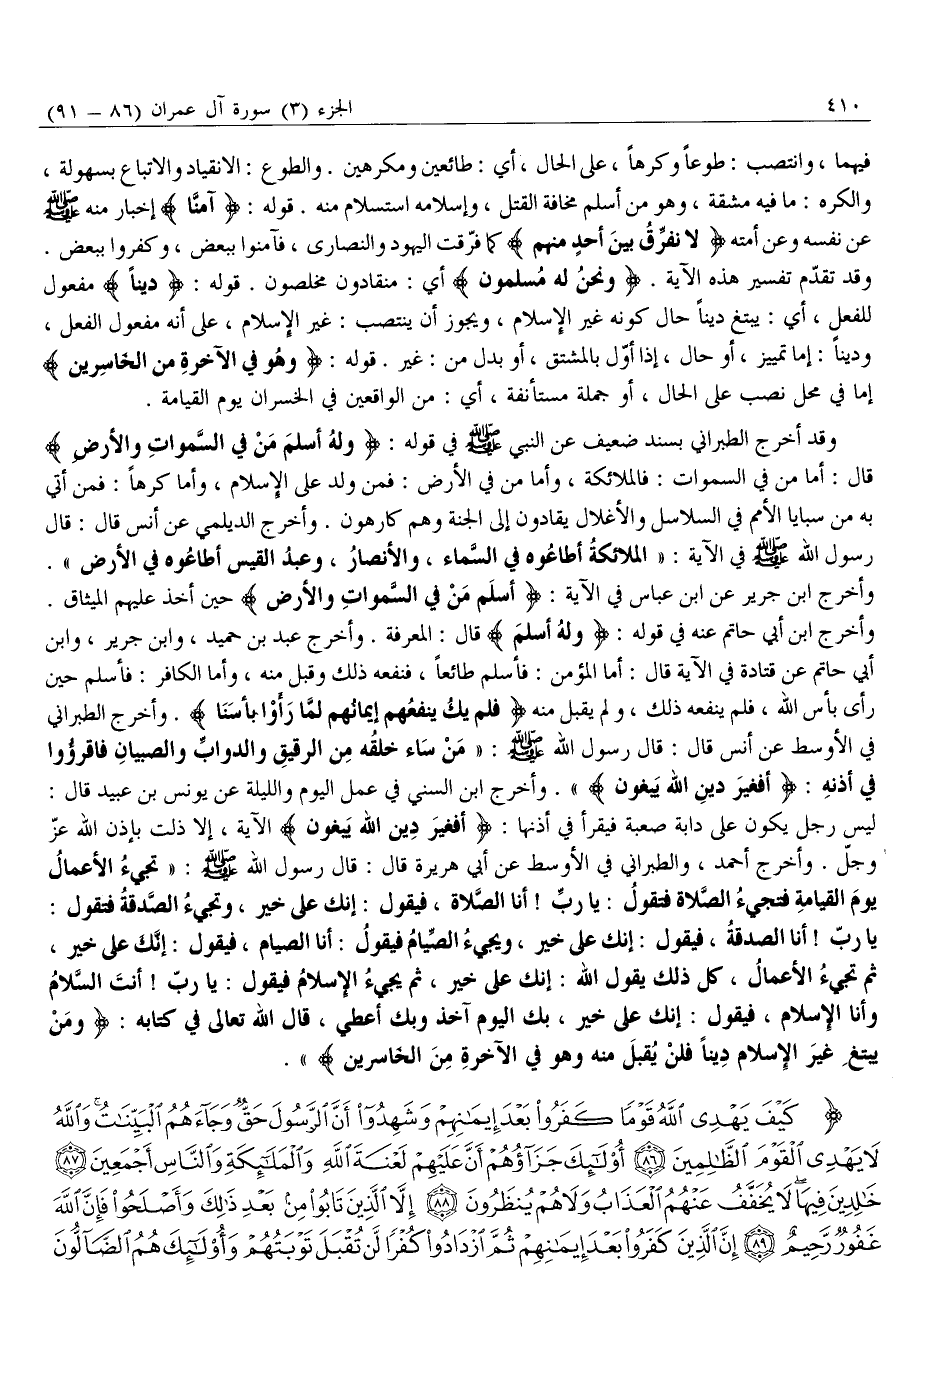 ٤١٠ الجزء (٣) سورة آل عمران (٨٦ – ٩١)
فيهما ، وانتصب : طوعاً وكرهاً ، على الحال ، أي : طائعين ومكرهين . والطوع : الانقياد والاتباع بسهولة ،
والكره : ما فيه مشقة ، وهو من أسلم مخافة القتل ، وإسلامه استسلام منه . قوله : ﴿ آمنَّا ﴾ إخبار منه ﷺ
عن نفسه وعن أمته ﴿ لا نفرِّقُ بينَ أحدٍ منهم ﴾ كما فرّقت اليهود والنصارى ، فآمنوا ببعض ، وكفروا ببعض .
وقد تقدّم تفسير هذه الآية . ﴿ ونحنُ له مُسلمون ﴾ أي : منقادون مخلصون . قوله : ﴿ ديناً ﴾ مفعول
للفعل ، أي : يبتغ ديناً حال كونه غير الإسلام ، ويجوز أن ينتصب : غير الإسلام ، على أنه مفعول الفعل ،
وديناً : إما تمييز ، أو حال ، إذا أوّل بالمشتق ، أو بدل من : غير . قوله : ﴿ وهُو في الآخرةِ من الخَاسِرين ﴾
إما في محل نصب على الحال ، أو جملة مستأنفة ، أي : من الواقعين في الخسران يوم القيامة .
وقد أخرج الطبراني بسند ضعيف عن النبي ﷺ في قوله : ﴿ ولهُ أسلمَ مَنْ في السَّمواتِ والأرضِ ﴾
قال : أما من في السموات : فالملائكة ، وأما من في الأرض : فمن ولد على الإسلام ، وأما كرهاً : فمن أتي
به من سبايا الأمم في السلاسل والأغلال يقادون إلى الجنة وهم كارهون . وأخرج الديلمي عن أنس قال : قال
رسول الله ﷺ في الآية : « الملائكةُ أطاعُوه في السَّماء ، والأنصارُ ، وعبدُ القيس أطاعُوه في الأرض » .
وأخرج ابن جرير عن ابن عباس في الآية : ﴿ أسلَم مَنْ في السَّمواتِ والأرض ﴾ حين أخذ عليهم الميثاق .
وأخرج ابن أبي حاتم عنه في قوله : ﴿ ولهُ أسلمَ ﴾ قال : المعرفة . وأخرج عبد بن حميد ، وابن جرير ، وابن
أبي حاتم عن قتادة في الآية قال : أما المؤمن : فأسلم طائعاً ، فنفعه ذلك وقبل منه ، وأما الكافر : فأسلم حين
رأى بأس الله ، فلم ينفعه ذلك ، ولم يقبل منه ﴿ فلم يكُ ينفعُهم إيمانُهم لمَّا رَأَوْا بأسَنَا ﴾ . وأخرج الطبراني
في الأوسط عن أنس قال : قال رسول الله ﷺ : « مَنْ سَاء خلقُه مِن الرقيقِ والدوابِّ والصبيانِ فاقرؤُوا
في أذنهِ : ﴿ أفغيرَ دينِ الله يَبغون ﴾ » . وأخرج ابن السني في عمل اليوم والليلة عن يونس بن عبيد قال :
ليس رجل يكون على دابة صعبة فيقرأ في أذنها : ﴿ أفغيرَ دِين الله يَبغون ﴾ الآية ، إلا ذلت بإذن الله عزّ
وجلّ . وأخرج أحمد ، والطبراني في الأوسط عن أبي هريرة قال : قال رسول الله ﷺ : « تجيءُ الأعمالُ
يومَ القيامةِ فتجيءُ الصَّلاة فتقولُ : يا ربِّ ! أنا الصَّلاة ، فيقول : إنك على خير ، وتجيءُ الصَّدقةُ فتقول :
يا ربّ ! أنا الصدقةُ ، فيقول : إنك على خير ، ويجيءُ الصِّيامُ فيقولُ : أنا الصيام ، فيقول : إنَّك على خير ،
ثم تجيءُ الأعمالُ ، كل ذلك يقول الله : إنك على خير ، ثم يجيءُ الإسلامُ فيقول : يا ربّ ! أنتَ السَّلامُ
وأنا الإسلام ، فيقول : إنك على خير ، بك اليوم آخذ وبك أعطي ، قال الله تعالى في كتابه : ﴿ ومَنْ
يبتغِ غيرَ الإسلام دِيناً فلنْ يُقبلَ منه وهو في الآخرةِ مِنَ الخَاسرين ﴾ » .
﴿ كَيْفَ يَهْدِى ٱللَّهُ قَوْمًا كَفَرُوا۟ بَعْدَ إِيمَٰنِهِمْ وَشَهِدُوٓا۟ أَنَّ ٱلرَّسُولَ حَقٌّ وَجَآءَهُمُ ٱلْبَيِّنَٰتُ ۚ وَٱللَّهُ
لَا يَهْدِى ٱلْقَوْمَ ٱلظَّٰلِمِينَ ﴿٨٦﴾ أُو۟لَٰٓئِكَ جَزَآؤُهُمْ أَنَّ عَلَيْهِمْ لَعْنَةَ ٱللَّهِ وَٱلْمَلَٰٓئِكَةِ وَٱلنَّاسِ أَجْمَعِينَ ﴿٨٧﴾
خَٰلِدِينَ فِيهَا لَا يُخَفَّفُ عَنْهُمُ ٱلْعَذَابُ وَلَا هُمْ يُنظَرُونَ ﴿٨٨﴾ إِلَّا ٱلَّذِينَ تَابُوا۟ مِنۢ بَعْدِ ذَٰلِكَ وَأَصْلَحُوا۟ فَإِنَّ ٱللَّهَ
غَفُورٌ رَّحِيمٌ ﴿٨٩﴾ إِنَّ ٱلَّذِينَ كَفَرُوا۟ بَعْدَ إِيمَٰنِهِمْ ثُمَّ ٱزْدَادُوا۟ كُفْرًا لَّن تُقْبَلَ تَوْبَتُهُمْ وَأُو۟لَٰٓئِكَ هُمُ ٱلضَّآلُّونَ